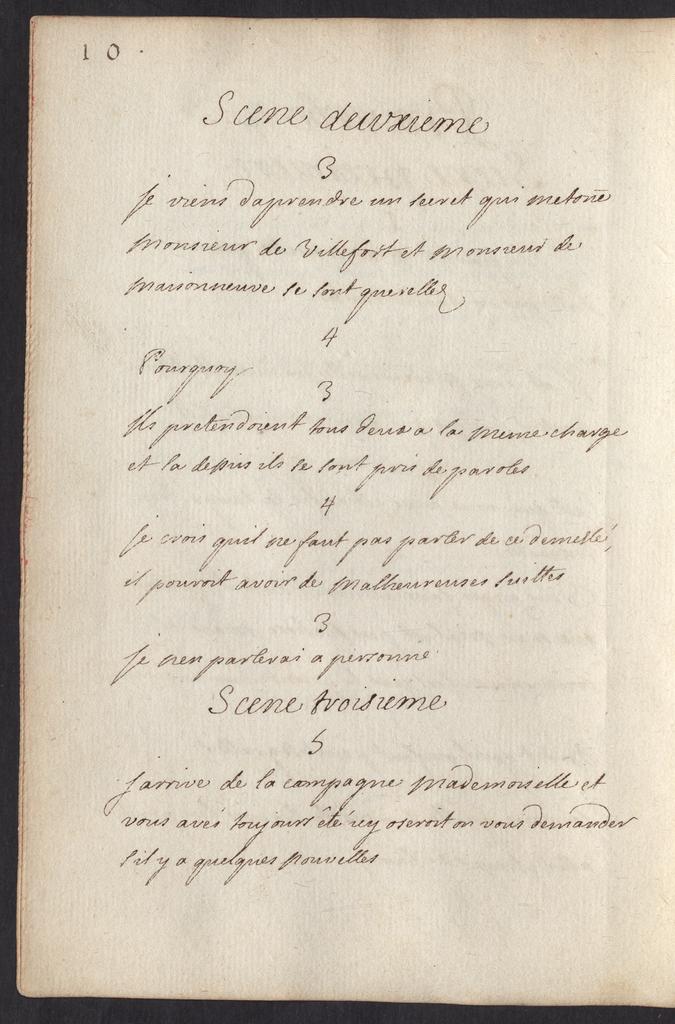 10.
Scene deuxieme
3
je viens daprendre un secret qui metone
monsieur de Villefort et monsieur de
maisonneuve se sont querellez
4
Pourquoy
3
ils pretendoient tous deux a la meme charge
et la dessus ils se sont pris de paroles
4
je crois quil ne faut pas parler de ce demeslé,
il pouroit avoir de malheureuses suittes
3
je nen parlerai a personne
Scene troisieme
5
jarrive de la campagne mademoiselle et
vous avés toujours été icy oseroit on vous demander
sil y a quelques nouvelles